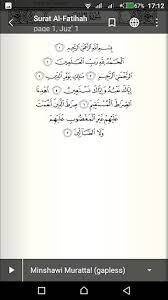 17:12
Surat Al-Fatihah
page 1, Juz' 1
بِسْمِ اللَّهِ الرَّحْمَٰنِ الرَّحِيمِ ١
الْحَمْدُ لِلَّهِ رَبِّ الْعَالَمِينَ ٢
الرَّحْمَٰنِ الرَّحِيمِ ٣ مَالِكِ يَوْمِ الدِّينِ ٤
إِيَّاكَ نَعْبُدُ وَإِيَّاكَ نَسْتَعِينُ ٥ اهْدِنَا
الصِّرَاطَ الْمُسْتَقِيمَ ٦ صِرَاطَ الَّذِينَ أَنْعَمْتَ
عَلَيْهِمْ غَيْرِ الْمَغْضُوبِ عَلَيْهِمْ
وَلَا الضَّالِّينَ ٧
Minshawi Murattal (gapless)